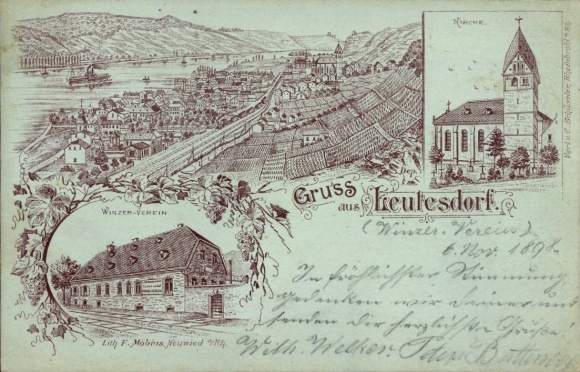 KIRCHE.
Verl. v. C.
Dep.
Gruss
aus Leutesdorf.
(Winzer-Verein)
6. Nov. 1898.
WINZER-VEREIN
In fröhlichster Stimmung
gedenken wir Deiner und
senden Dir herzlichste Grüße!
Wilh. Welker.
Lith. F. Mobius, Neuwied a/Rh.